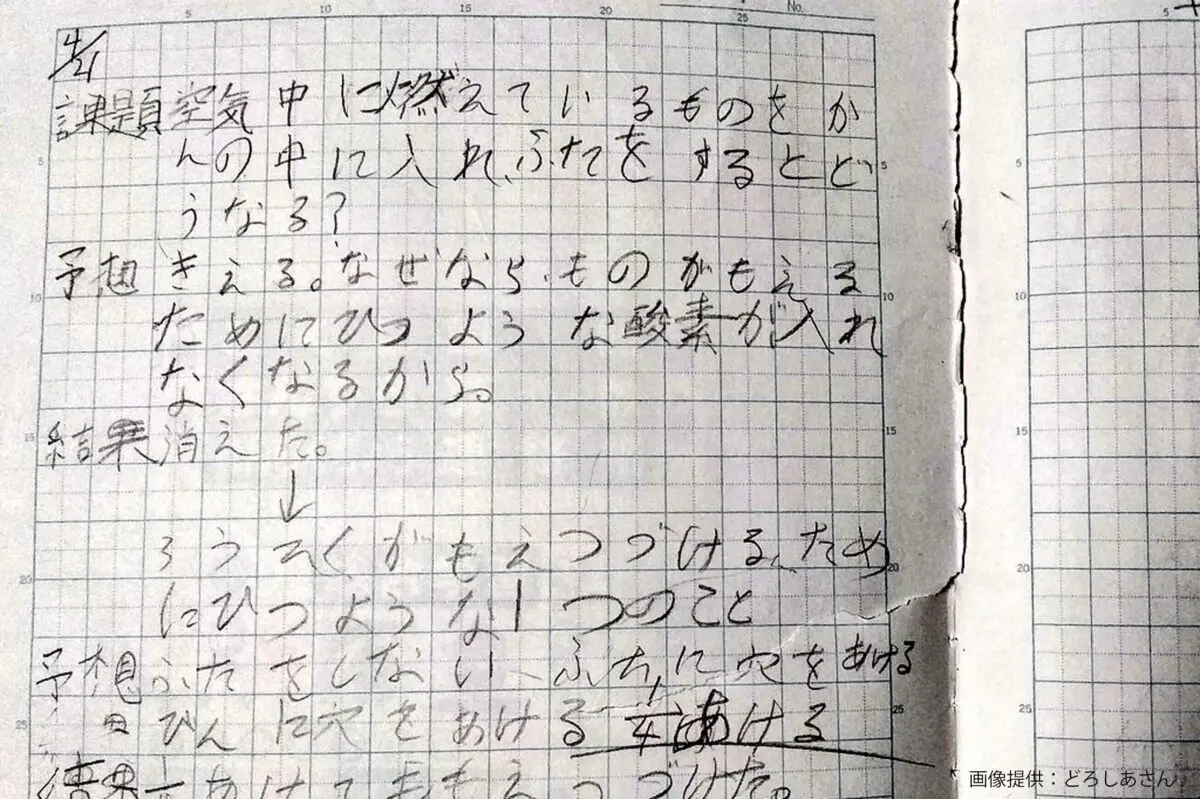 No.
4/21
課題 空気中に燃えているものをか
んの中に入れ、ふたをするとど
うなる?
予想 きえる。なぜなら、ものがもえる
ためにひつような酸素が入れ
なくなるから。
結果 消えた。
↓
ろうそくがもえつづける、ため
にひつような1つのこと
予想 ふたをしない、ふたに穴をあける
びんに穴をあける
あける
結果
あけてももえつづけた。
画像提供:どろしあさん